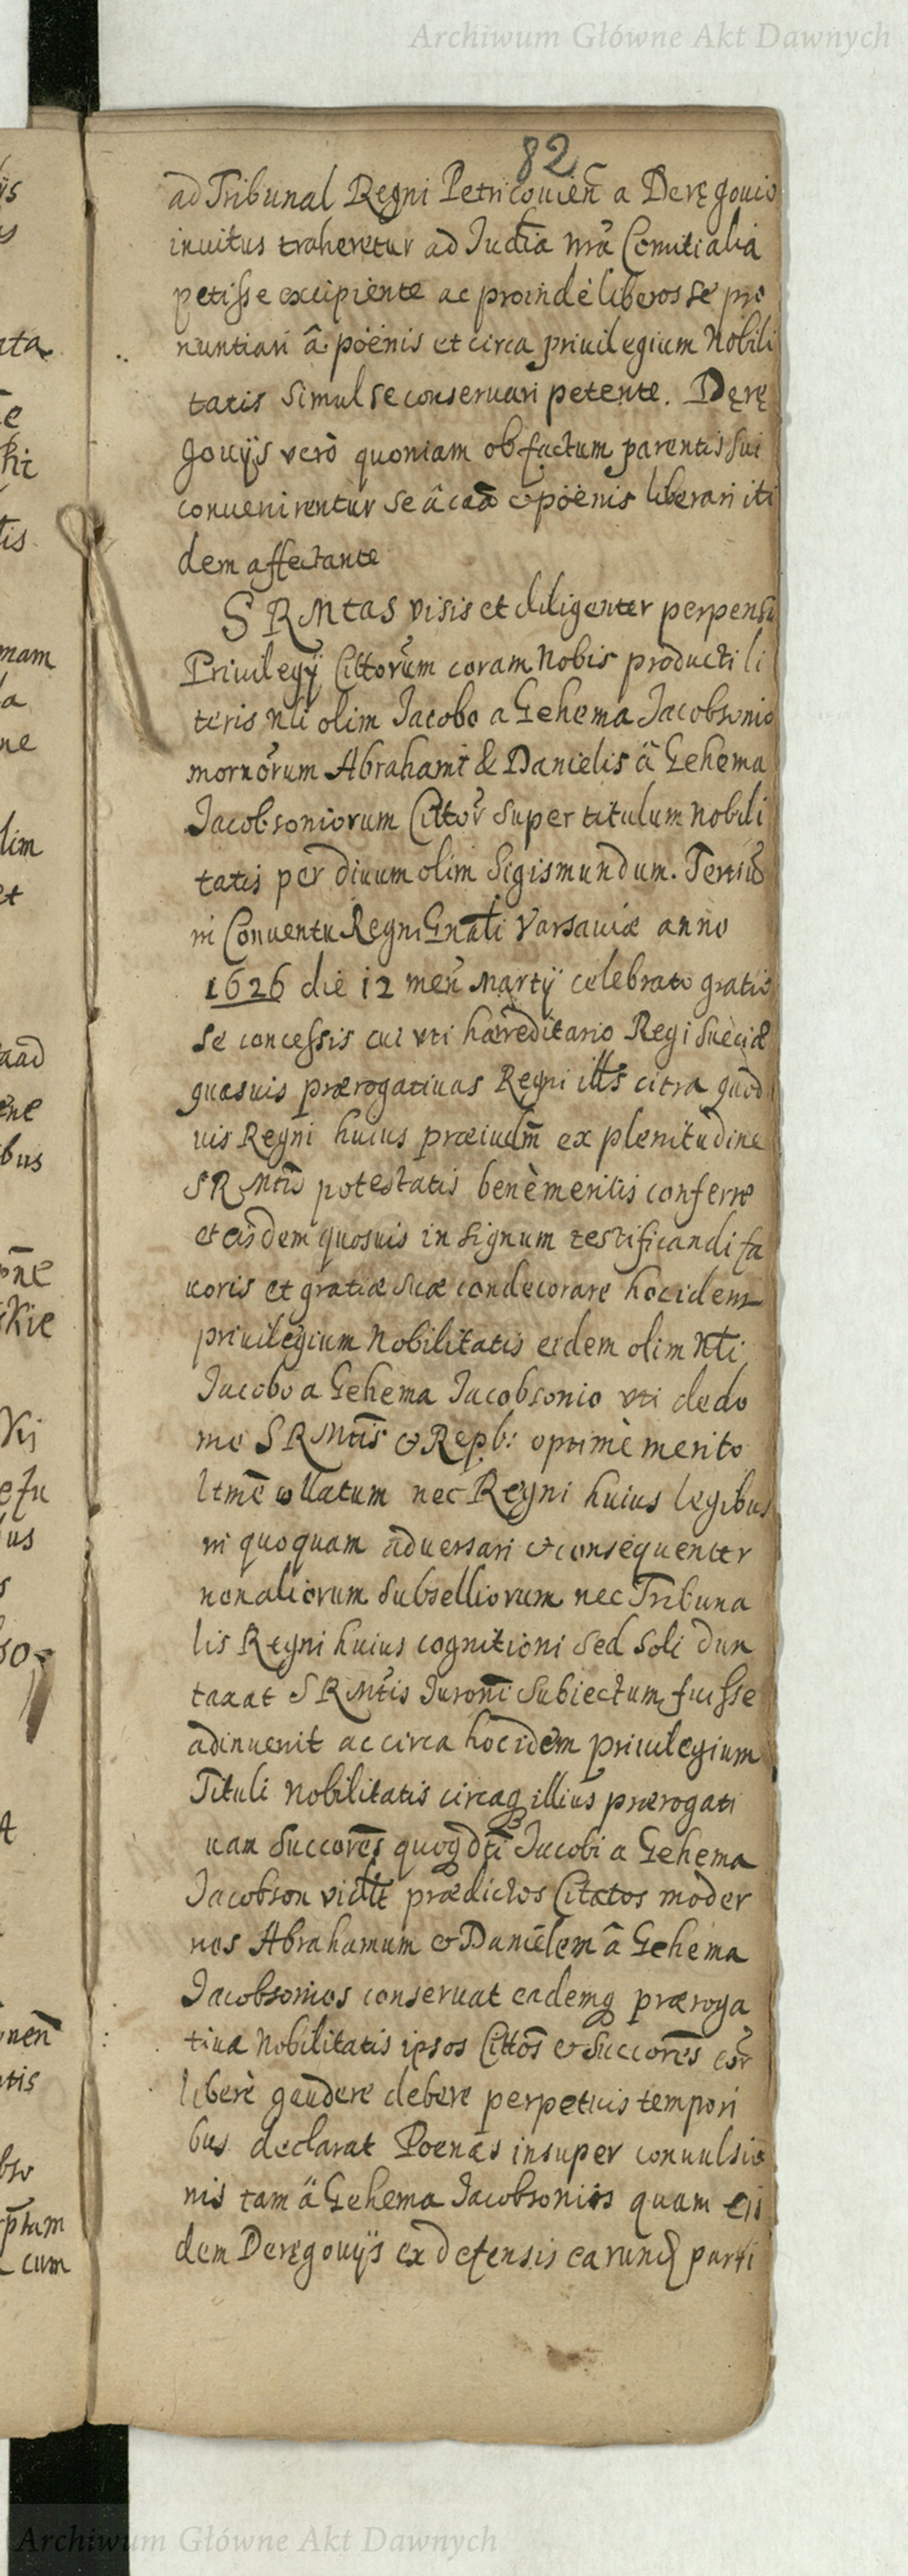 Archiwum Główne Akt Dawnych
82
ad Tribunal Regni Petricouień a Deręgouio
inuitus traheretur ad Iudia nrã Comitialia
petisse excipiente ac proinde liberos se pro
nuntiari â poenis et circa priuilegium Nobili
tatis simul se conseruari petente. Derę
gouijs verò quoniam ob factum parentis sui
conuenirentur se â caã & poenis liberari iti
dem affectante
S R Mtas visis et diligenter perpensis
Priuilegÿ Cittorum coram Nobis producti li
teris Nli olim Iacobo a Gehema Iacobsonio
mornorum Abrahami & Danielis â Gehema
Iacobsoniorum Cittor super titulum nobili
tatis per diuum olim Sigismundum. Tertiũ
in Conuentu Regni Gnãli Varsauiæ anno
1626 die 12 meñ Martÿ celebrato gratio
se concessis cui vti hæreditario Regi Sueciæ
quasuis prærogatiuas Regni illĩs citra quod
uis Regni huius præiudm̃ ex plenitudine
S R Mtis potestatis benè meritis conferre
et eisdem quosuis in signum testificandi fa
uoris et gratiæ suæ condecorare hoc idem
priuilegium Nobilitatis eidem olim Nli
Iacobo a Gehema Iacobsonio vti de do
mo S R Mtis & Repb: optimè merito
ltmẽ collatum nec Regni huius legibus
in quoquam aduersari & consequenter
non aliorum subselliorum nec Tribuna
lis Regni huius cognitioni sed soli dun
taxat S R Mtis Iuroni subiectum fuisse
adinuenit ac circa hoc idem priuilegium
Tituli Nobilitatis circaq illius prærogati
uam succorẽs quoq dti Iacobi a Gehema
Iacobson vidlt prædictos Citatos moder
nos Abrahamum & Danielem â Gehema
Iacobsonios conseruat eademq præroga
tiua Nobilitatis ipsos Cittõs & succorẽs eor̃
liberè gaudere debere perpetuis tempori
bus declarat Poenas insuper conuulsio
nis tam â Gehema Iacobsoniis quam eis
dem Deręgouijs ex defensis earund parti
Archiwum Główne Akt Dawnych